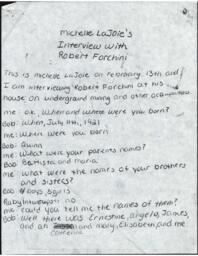 Michelle LaJoie's
Interview with
Robert Forchini
This is michelle LaJoie on February 13th and
I am interviewing Robert Forchini at his
house on underground mining and other
me: o.k. When and where were you born?
Bob: When, July 11th, 1921
me: Where were you born
Bob: Quinn
me: What were your parents names?
Bob: Battista and maria
me: What were the names of your brothers
and sisters?
Bob: 4 boys, 3 girls
Ruby Interrupts: no
me: could you tell me the names of them?
Bob: Well there was Ernestine, Angelo, James,
and an and mary, Elisabeth, and me
Catherine